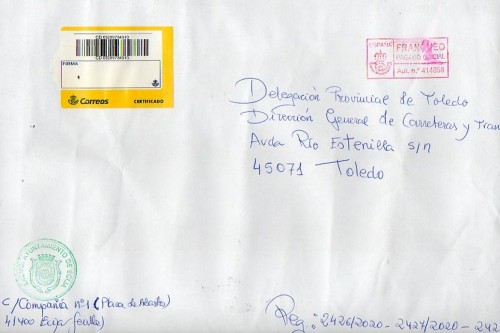 CD 05209784013
CD 05209784013
FIRMA
Correos
CERTIFICADO
ESPAÑA
FRANQUEO
PAGADO OFICIAL
AUT. nº 414058
Delegación Provincial de Toledo
Dirección General de Carreteras y Tran
Avda Río Estenilla s/n
45071 Toledo
AYUNTAMIENTO DE ECIJA
C/ Compañía nº1 (Plaza de Abastos)
41400 Ecija (Sevilla)
Reg: 2426/2020 - 2427/2020 - 242